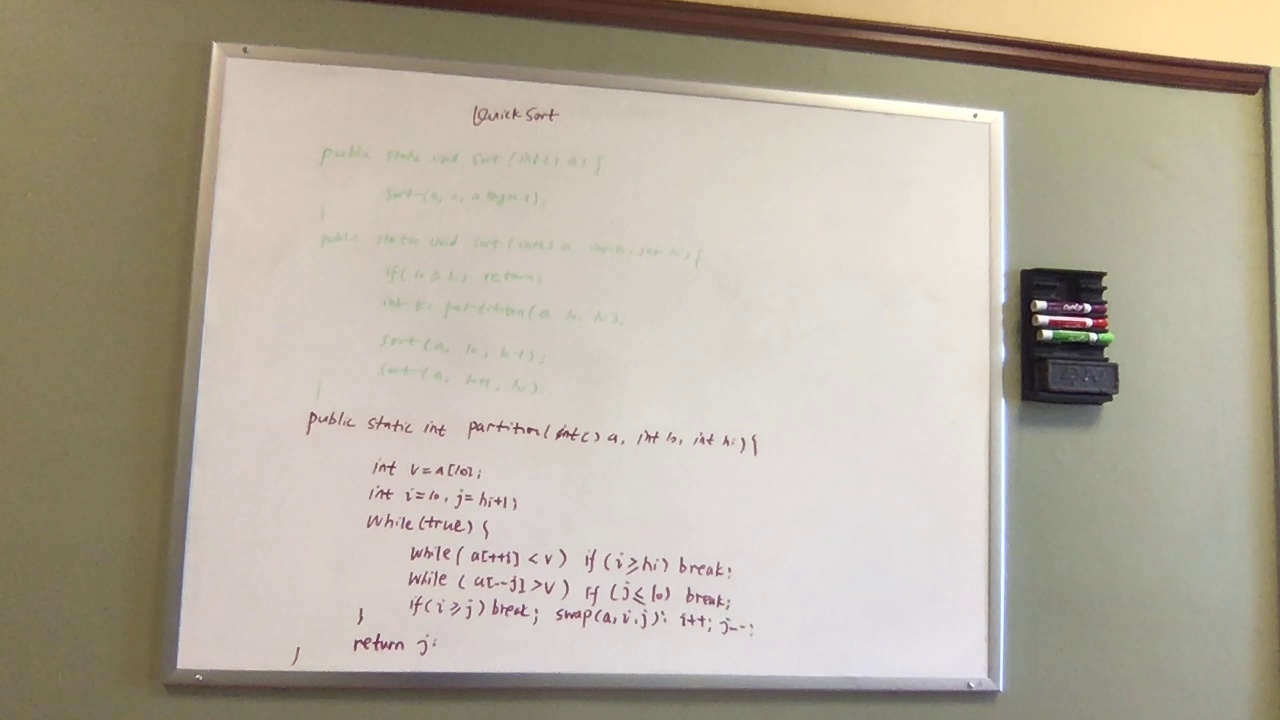 QuickSort
public static void sort (int[] a) {
sort(a, 0, a.length-1);
}
public static void sort (int[] a, int lo, int hi) {
if (lo ≥ hi) return;
int k= partition(a, lo, hi);
sort (a, lo, k-1);
sort (a, k+1, hi);
}
public static int partition(int[] a, int lo, int hi) {
int v=a[lo];
int i=lo, j=hi+1;
While(true) {
while( a[++i] < v) if (i≥hi) break;
while ( a[--j] >v) if (j≤lo) break;
if(i≥j) break; swap(a,i,j); i++; j--;
}
return j;
}